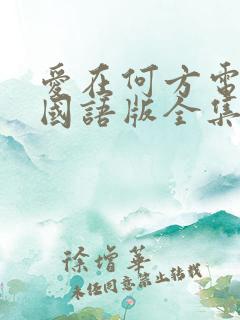 愛在何方電
國語版全集
徐增華
未经同意禁止转载